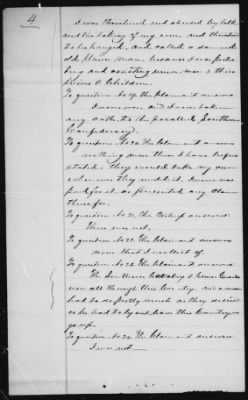 4
I was threatened and abused by talk
and the taking of my corn and threatened
to be hanged, and called a damned
old Union man, because I was feeding
and assisting Union men & their
Wives & Children.
To question No 19. the Claimant answers
I never was, and never taken
any oath to the so called Southern
Confederacy.
To question No 20. The Claimant answers
nothing more than I have before
stated. They would take my corn
when ever they needed it. I never was
paid for it or presented any claim
therefor.
To question No 21. the Claimant answers
There was not.
To question No 22. The Claimant answers
none that I recollect of.
To question No 23. The Claimant answers
The Southern Cavalry & Home Guards
were all through this County. And a man
had to do pretty much as they desired
or he had to lay out, leave this Country, or
go up.
To question No 24. The Claimant answers
I was not